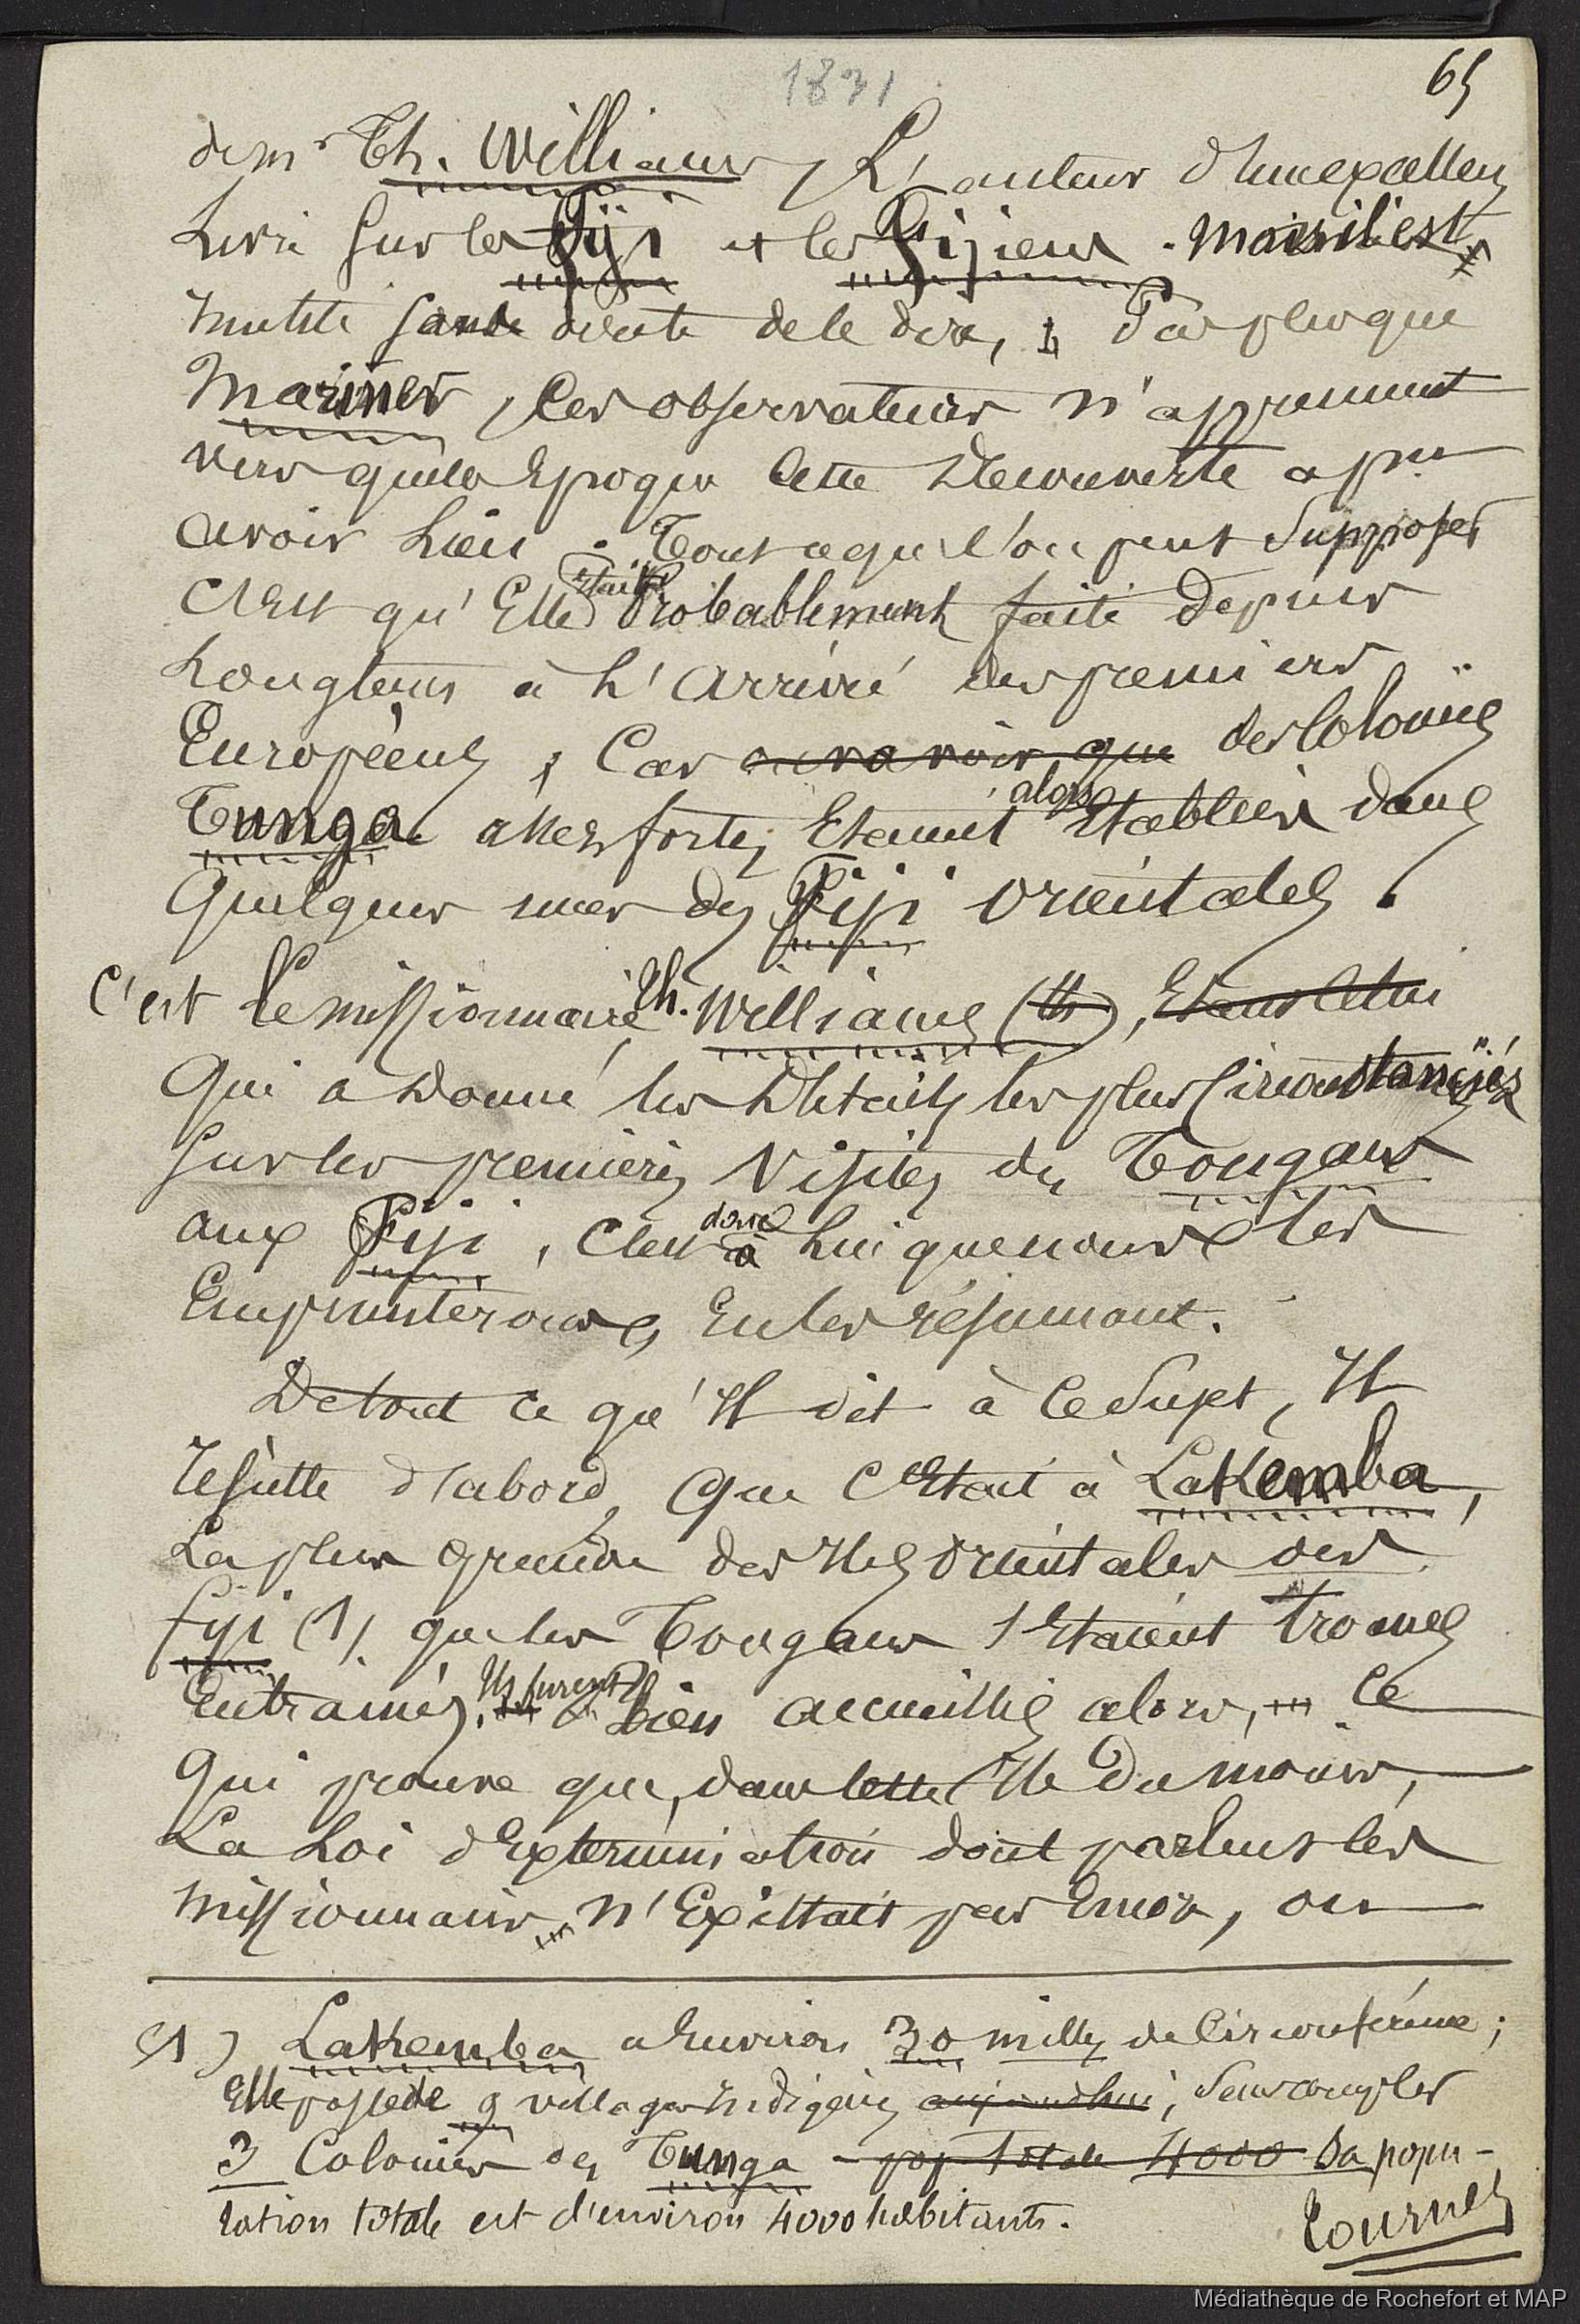 1831
65
de Mr Th. Williams, L'auteur d'un excellent
Livre sur les Fiji et les Fijiens. Mais il est
inutile sans doute de le dire, Pas plus que
Mariner, ces observateurs n'apprennent
vers quelle Epoque cette Decouverte a pu
avoir Lieu. Tout ce que l'on peut Supposer
C'est qu'Elle Etait Probablement faite Depuis
Longtems à L'Arrivé des premiers
Européens, Car des Colonies
Tunga assez fortes Etaient alors Etablies dans
Quelques unes des Fiji orientales.
C'est Le missionnaire Th. Williams,
Qui a Donné les Détails les plus Circonstanciés
Sur les premières Visites des Tongans
aux Fiji, C'est donc à Lui que nous les
Emprunterons, En les résumant.
De tout ce qu'Il dit à Ce Sujet, Il
résulte d'abord, Que C'Etait à Lakemba,
La plus grande des Iles orientales des
Fiji (1), que les Tongans s'Etaient trouvés
Entrainés. Ils furent Bien accueillis alors, Ce
Qui prouve que, dans cette Ile Du moins,
La Loi d'Extermination dont parlent les
missionnaires, n'Existait pas Encore, ou
(1) Lakemba a Environ 30 milles de Circonférence;
Elle possède 9 villages indigènes aujourdhui, Sans compter
3 Colonies des Tunga - pop Totale 4000 Sa popu-
lation totale est d'environ 4000 habitants.
Tournez
Médiathèque de Rochefort et MAP